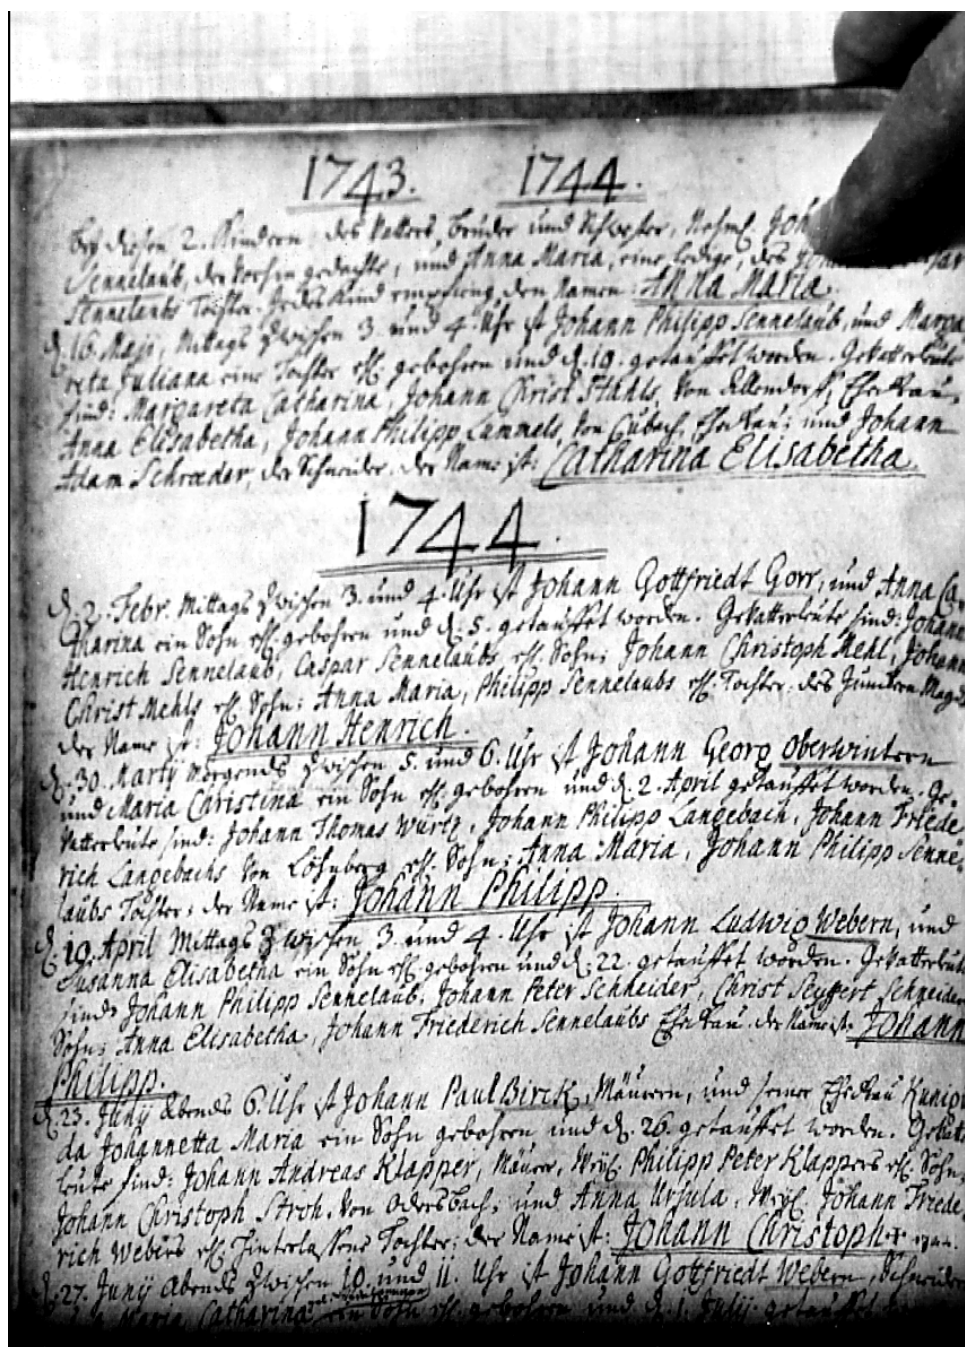 1743. 1744.
bey diesen 2. Kindern, des Vatters Bruder und Schwester, Nehml. Joh
Sennelaub, der vorhin gedachte, und Anna Maria, eine ledige, des
Sennelaubs Tochter. Jedes Kind empfieng den Namen: Anna Maria.
d. 16. Maji, Mittags zwischen 3. und 4. Uhr ist Johann Philipp Sennelaub, und Marga
reta Juliana eine Tochter ehl. gebohren und d. 19. getauffet worden. Gevatterleute
sind: Margareta Catharina, Johann Christ Stahls, von Allendorff, Ehefrau,
Anna Elisabetha, Johann Philipp Lammels, von Cubach, Ehefrau; und Johann
Adam Schrœder, der Schneider. der Name ist: Catharina Elisabetha.
1744.
d. 2. Febr. Mittags zwischen 3. und 4. Uhr ist Johann Gottfriedt Gorr, und Anna Ca-
tharina ein Sohn ehl. gebohren und d. 5. getauffet worden. Gevatterleute sind: Johann
Henrich Sennelaub, Caspar Sennelaubs ehl. Sohn; Johann Christoph Mehl, Johann
Christ Mehls ehl. Sohn; Anna Maria, Philipp Sennelaubs ehl. Tochter; des
der Name ist: Johann Henrich.
d. 30. Martij Morgends zwischen 5. und 6. Uhr ist Johann Georg Oberwintern
und Maria Christina ein Sohn ehl. gebohren und d. 2. April getauffet worden. Ge-
vatterleute sind: Johann Thomas Würtz, Johann Philipp Langebach, Johann Friede
rich Langebachs von Löhnberg ehl. Sohn; Anna Maria, Johann Philipp Senne-
laubs Tochter; der Name ist: Johann Philipp.
d. 19. April Mittags zwischen 3. und 4. Uhr ist Johann Ludwig Webern, und
Susanna Elisabetha ein Sohn ehl. gebohren und d. 22. getauffet worden. Gevatterleute
sind: Johann Philipp Sennelaub, Johann Peter Schneider, Christ Seyffert Schneider
Sohn; Anna Elisabetha, Johann Friederich Sennelaubs Ehefrau. der Name ist: Johann
Philipp.
d. 23. Junij Abends 6. Uhr ist Johann Paul Birck, Mäurern, und seiner Ehefrau Kunigu
da Johannetta Maria ein Sohn gebohren und d. 26. getauffet worden. Gevatter
leute sind: Johann Andreas Klapper, Mäurer, Weyl. Philipp Peter Klappers ehl. Sohn,
Johann Christoph Stroh, von Odersbach; und Anna Ursula, Weyl. Johann Friede
rich Webers ehl. hinterlassene Tochter; der Name ist: Johann Christoph
d. 27. Junij Abends zwischen 10. und 11. Uhr ist Johann Gottfriedt Webern, Schneider
Maria Catharina ein Sohn ehl. gebohren und d. 1. Julij getauffet